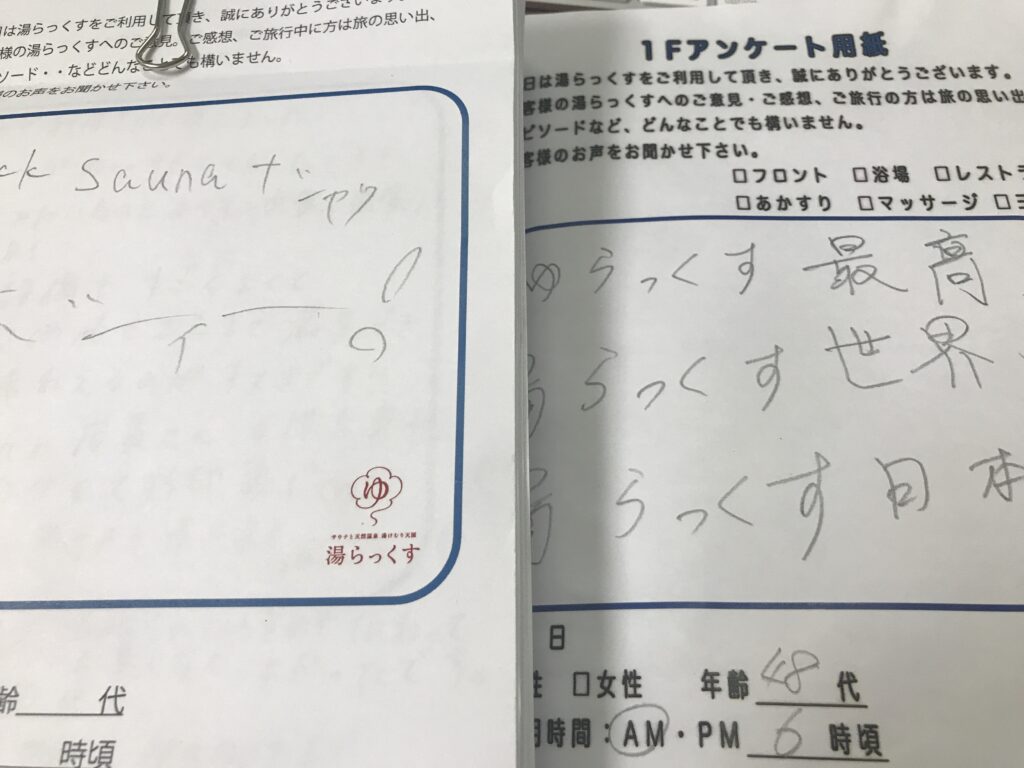 日は湯らっくすをご利用して頂き、誠にありがとうございます。
様の湯らっくすへのご意見。ご感想、ご旅行中に方は旅の思い出、
ソード・・などどんなことでも構いません。
のお声をお聞かせ下さい。
ck Sauna ナ
ゆ
サウナと天然温泉 湯けむり天国
湯らっくす
齢 代
時頃
1Fアンケート用紙
日は湯らっくすをご利用して頂き、誠にありがとうございます。
客様の湯らっくすへのご意見・ご感想、ご旅行の方は旅の思い出
ピソードなど、どんなことでも構いません。
客様のお声をお聞かせ下さい。
□フロント □浴場 □レストラ
□あかすり □マッサージ □ヨ
ゆらっくす 最高
湯らっくす 世界
湯らっくす 日本
日
性 □女性 年齢 48 代
用時間：AM・PM 6 時頃